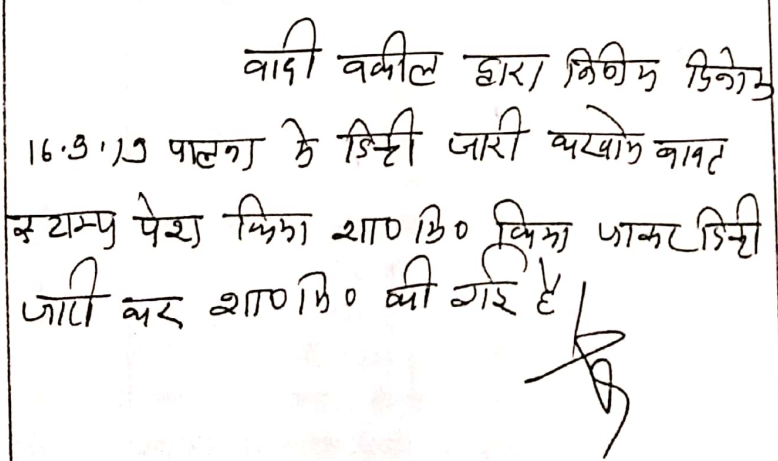 वादी वकील द्वारा निर्णय दिनांक
16.9.19 पालना में डिक्री जारी करवाने बाबत
स्टाम्प पेश किया शा० मि० किया जाकर डिक्री
जारी कर शा० मि० की गई है